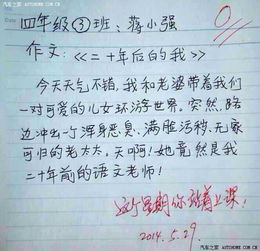 汽车之家 AUTOHOME.COM.CN
四年级③班:蒋小强
0
作文:《二十年后的我》
今天天气不错,我和老婆带着我们
一对可爱的儿女环游世界。突然,路
边冲出一个浑身恶臭、满脸污秽、无家
可归的老太太,天啊!她竟然是我
二十年前的语文老师!
这个星期你站着上课!
2014.5.29.
汽车之家 AUTOHOME.COM.CN